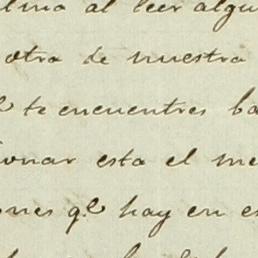 al leer algu
otra de nuestra
te encuentres ba
ionar esta el me
ones q.e hay en es